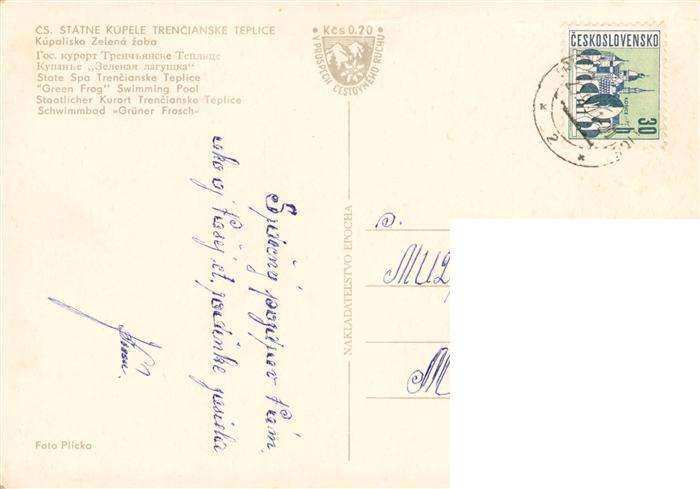 ČS. STATNE KÚPELE TRENČIANSKE TEPLICE
Kúpalisko Zelená žaba
Гос. курорт Тренчьянске Теплице
Купанье „Зеленая лагушка"
State Spa Trenčianske Teplice
"Green Frog" Swimming Pool
Staatlicher Kurort Trenčianske Teplice
Schwimmbad »Grüner Frosch«
Kčs 0.20
V PROSPECH CESTOVNÉHO RUCHU
ČESKOSLOVENSKO
30 h
Srdečný pozdrav Vám
ako aj Vašej ct. rodinke
NAKLADATELSTVO E
p.
MUD
M
Foto Plicka